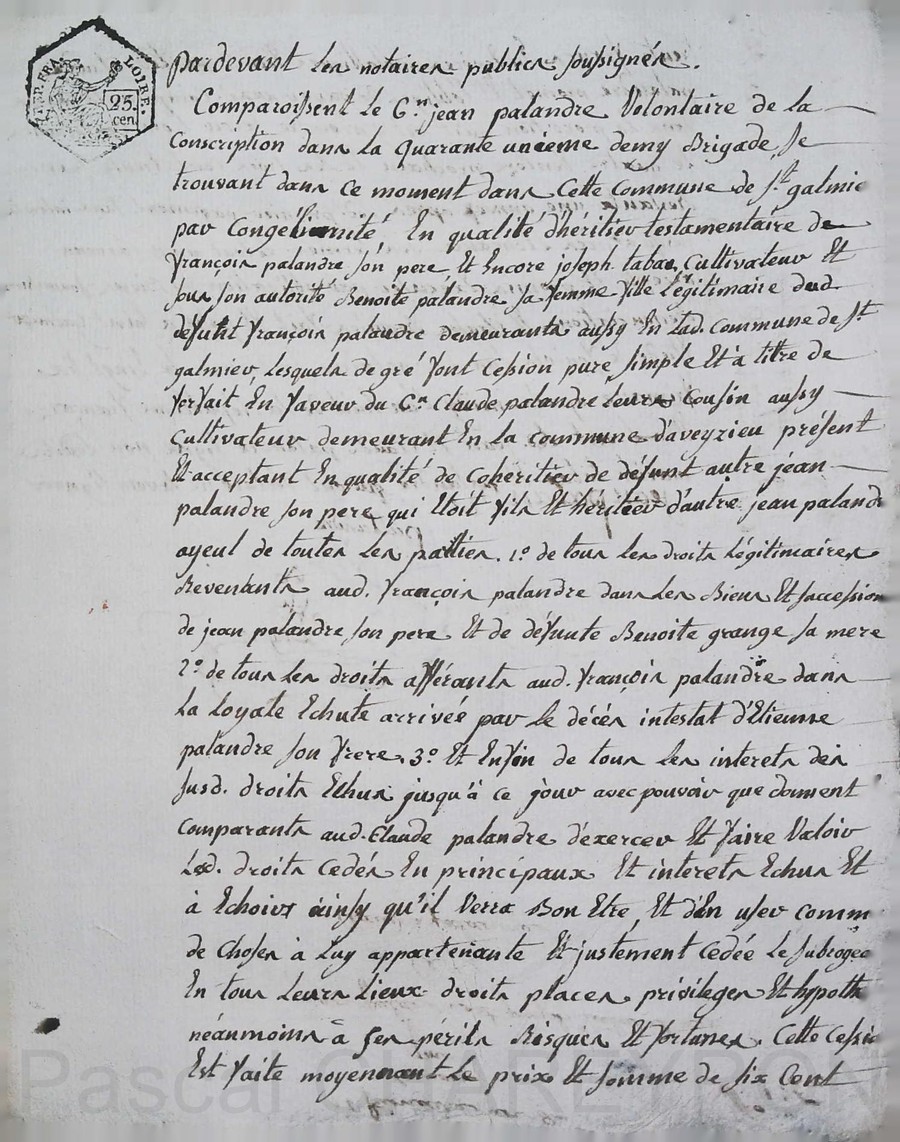 REP. FRA.
LOIRE.
25.
cen
Pardevant les notaires publics soussignés.
Comparoissent le C.n jean palandre Volontaire de la
Conscription dans la quarante unieme demy Brigade, se
trouvant dans ce moment dans Cette Commune de s.t galmie
par Congé En qualité d'héritier testamentaire de
françois palandre son pere, Et Encore joseph Cultivateur Et
sous son autorité Benoite palandre sa femme fille légitimaire dud.
défunt françois palandre demeurants aussy En lad. Commune de s.t
galmier, Lesquels de gré font Cession pure simple Et à titre de
forfait En faveur du C.n Claude palandre leurs Cousin aussy
Cultivateur demeurant En la commune d'aveyzieu présent
Et acceptant En qualité de Coheritier de défunt autre jean
palandre son pere qui Etoit fils Et héritier d'autre jean paland
ayeul de toutes les parties. 1.° de tous les droits légitimaires
Revenants aud. françois palandre dans les Biens Et succession
de jean palandre son pere Et de défunte Benoite grange sa mere
2.° de tous les droits afférants aud. françois palandre dans
La Loyale Echute arrivée par le décès intestat d'Etienne
palandre son frere. 3.° Et Enfin de tous les interets des
susd. droits Echus jusqu'à ce jour avec pouvoir que donnent
Comparants aud. Claude palandre d'éxercer Et faire Valoir
Led. droits Cedés En principaux Et interets Echus Et
à Echoirs ainsy qu'il Verra Bon Etre, Et d'En user comm
de Choses à Luy appartenante Et justement Cedée Le subrogea
En tous Leurs Lieux droits places privileges Et hypoth
néanmoins à ses périls Risques Et fortunes. Cette Cessio
Est faite moyennant Le prix Et somme de six Cent
Pascal